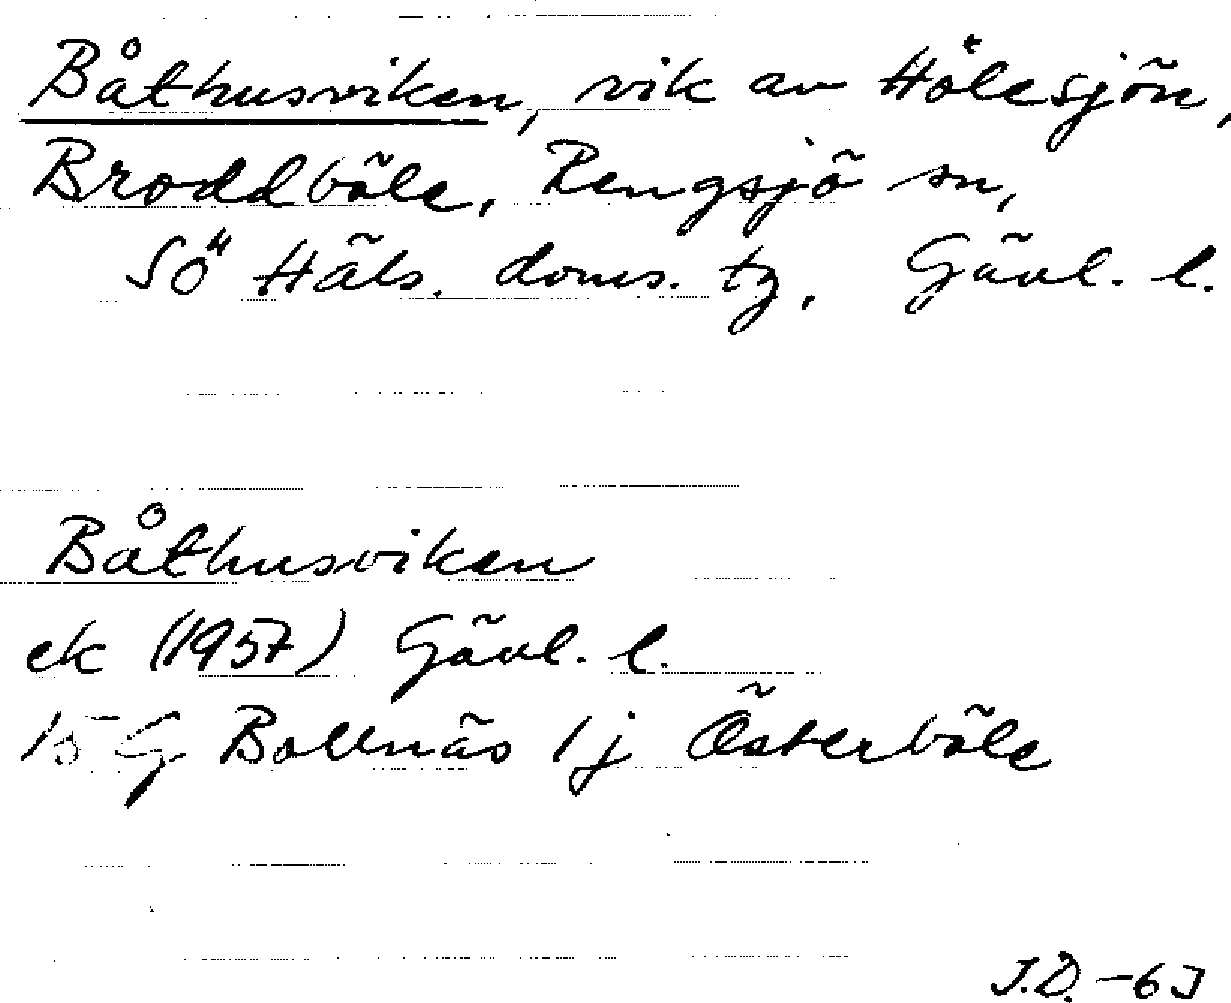 Båthusviken, vik av Hålesjön,
Broddböle, Rengsjö sn,
SÖ Häls. doms. tg, Gävl. l.
Båthusviken
ek (1957) Gävl. l.
15 G Bollnäs 1j Österböle
J.D. -63